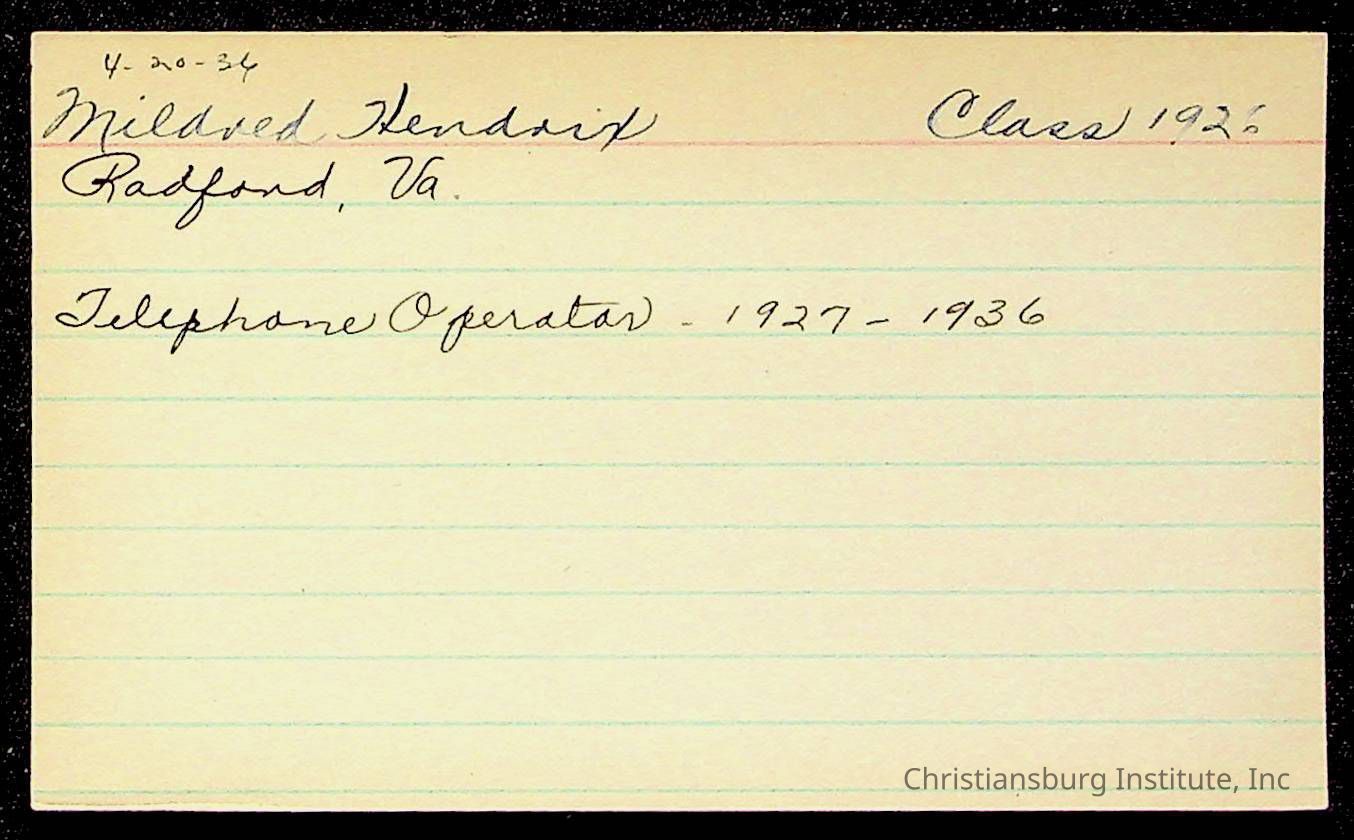 4-20-36
Mildred Hendrix Class 1926
Radford, Va.
Telephone Operator - 1927 - 1936
Christiansburg Institute, Inc